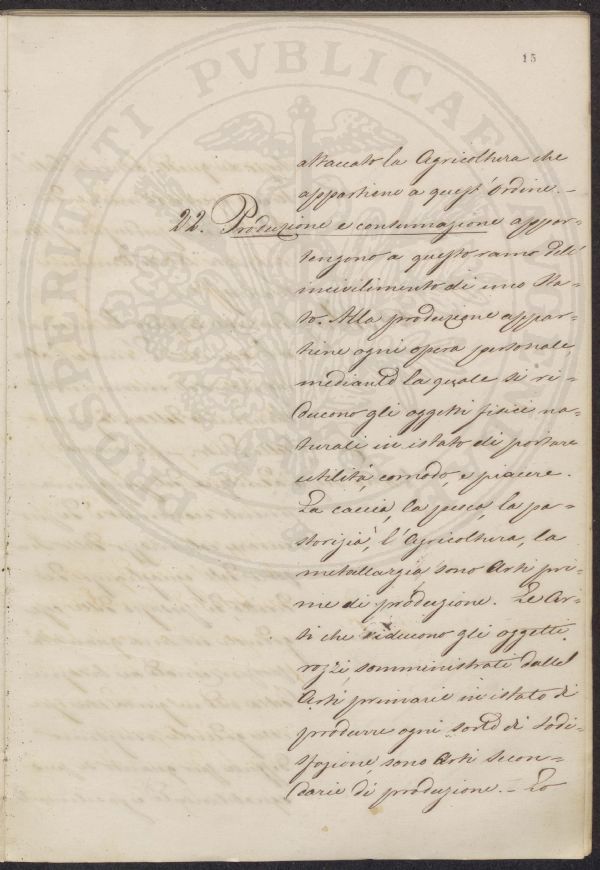 PROSPERITATI PVBLICAE
15
attaccato la Agricoltura che
appartiene a quest'Ordine. -
22. Produzione e consumazione appar=
tengono a questo ramo dell'
incivilimento di uno Sta=
to. Alla produzione appar=
tiene ogni opera personale,
mediante la quale si ri=
ducono gli oggetti fisici na=
turali in istato di portare
utilità, comodo e piacere.
La caccia, la pesca, la pa=
storizia, l'Agricoltura, la
metallurgia, sono Arti pri=
me di produzione. Le Ar=
ti che riducono gli oggetti
rozzi, somministrati dalle
Arti primarie in istato di
produrre ogni sorte di sodi=
sfazione sono Arti secon=
darie di produzione. - Lo